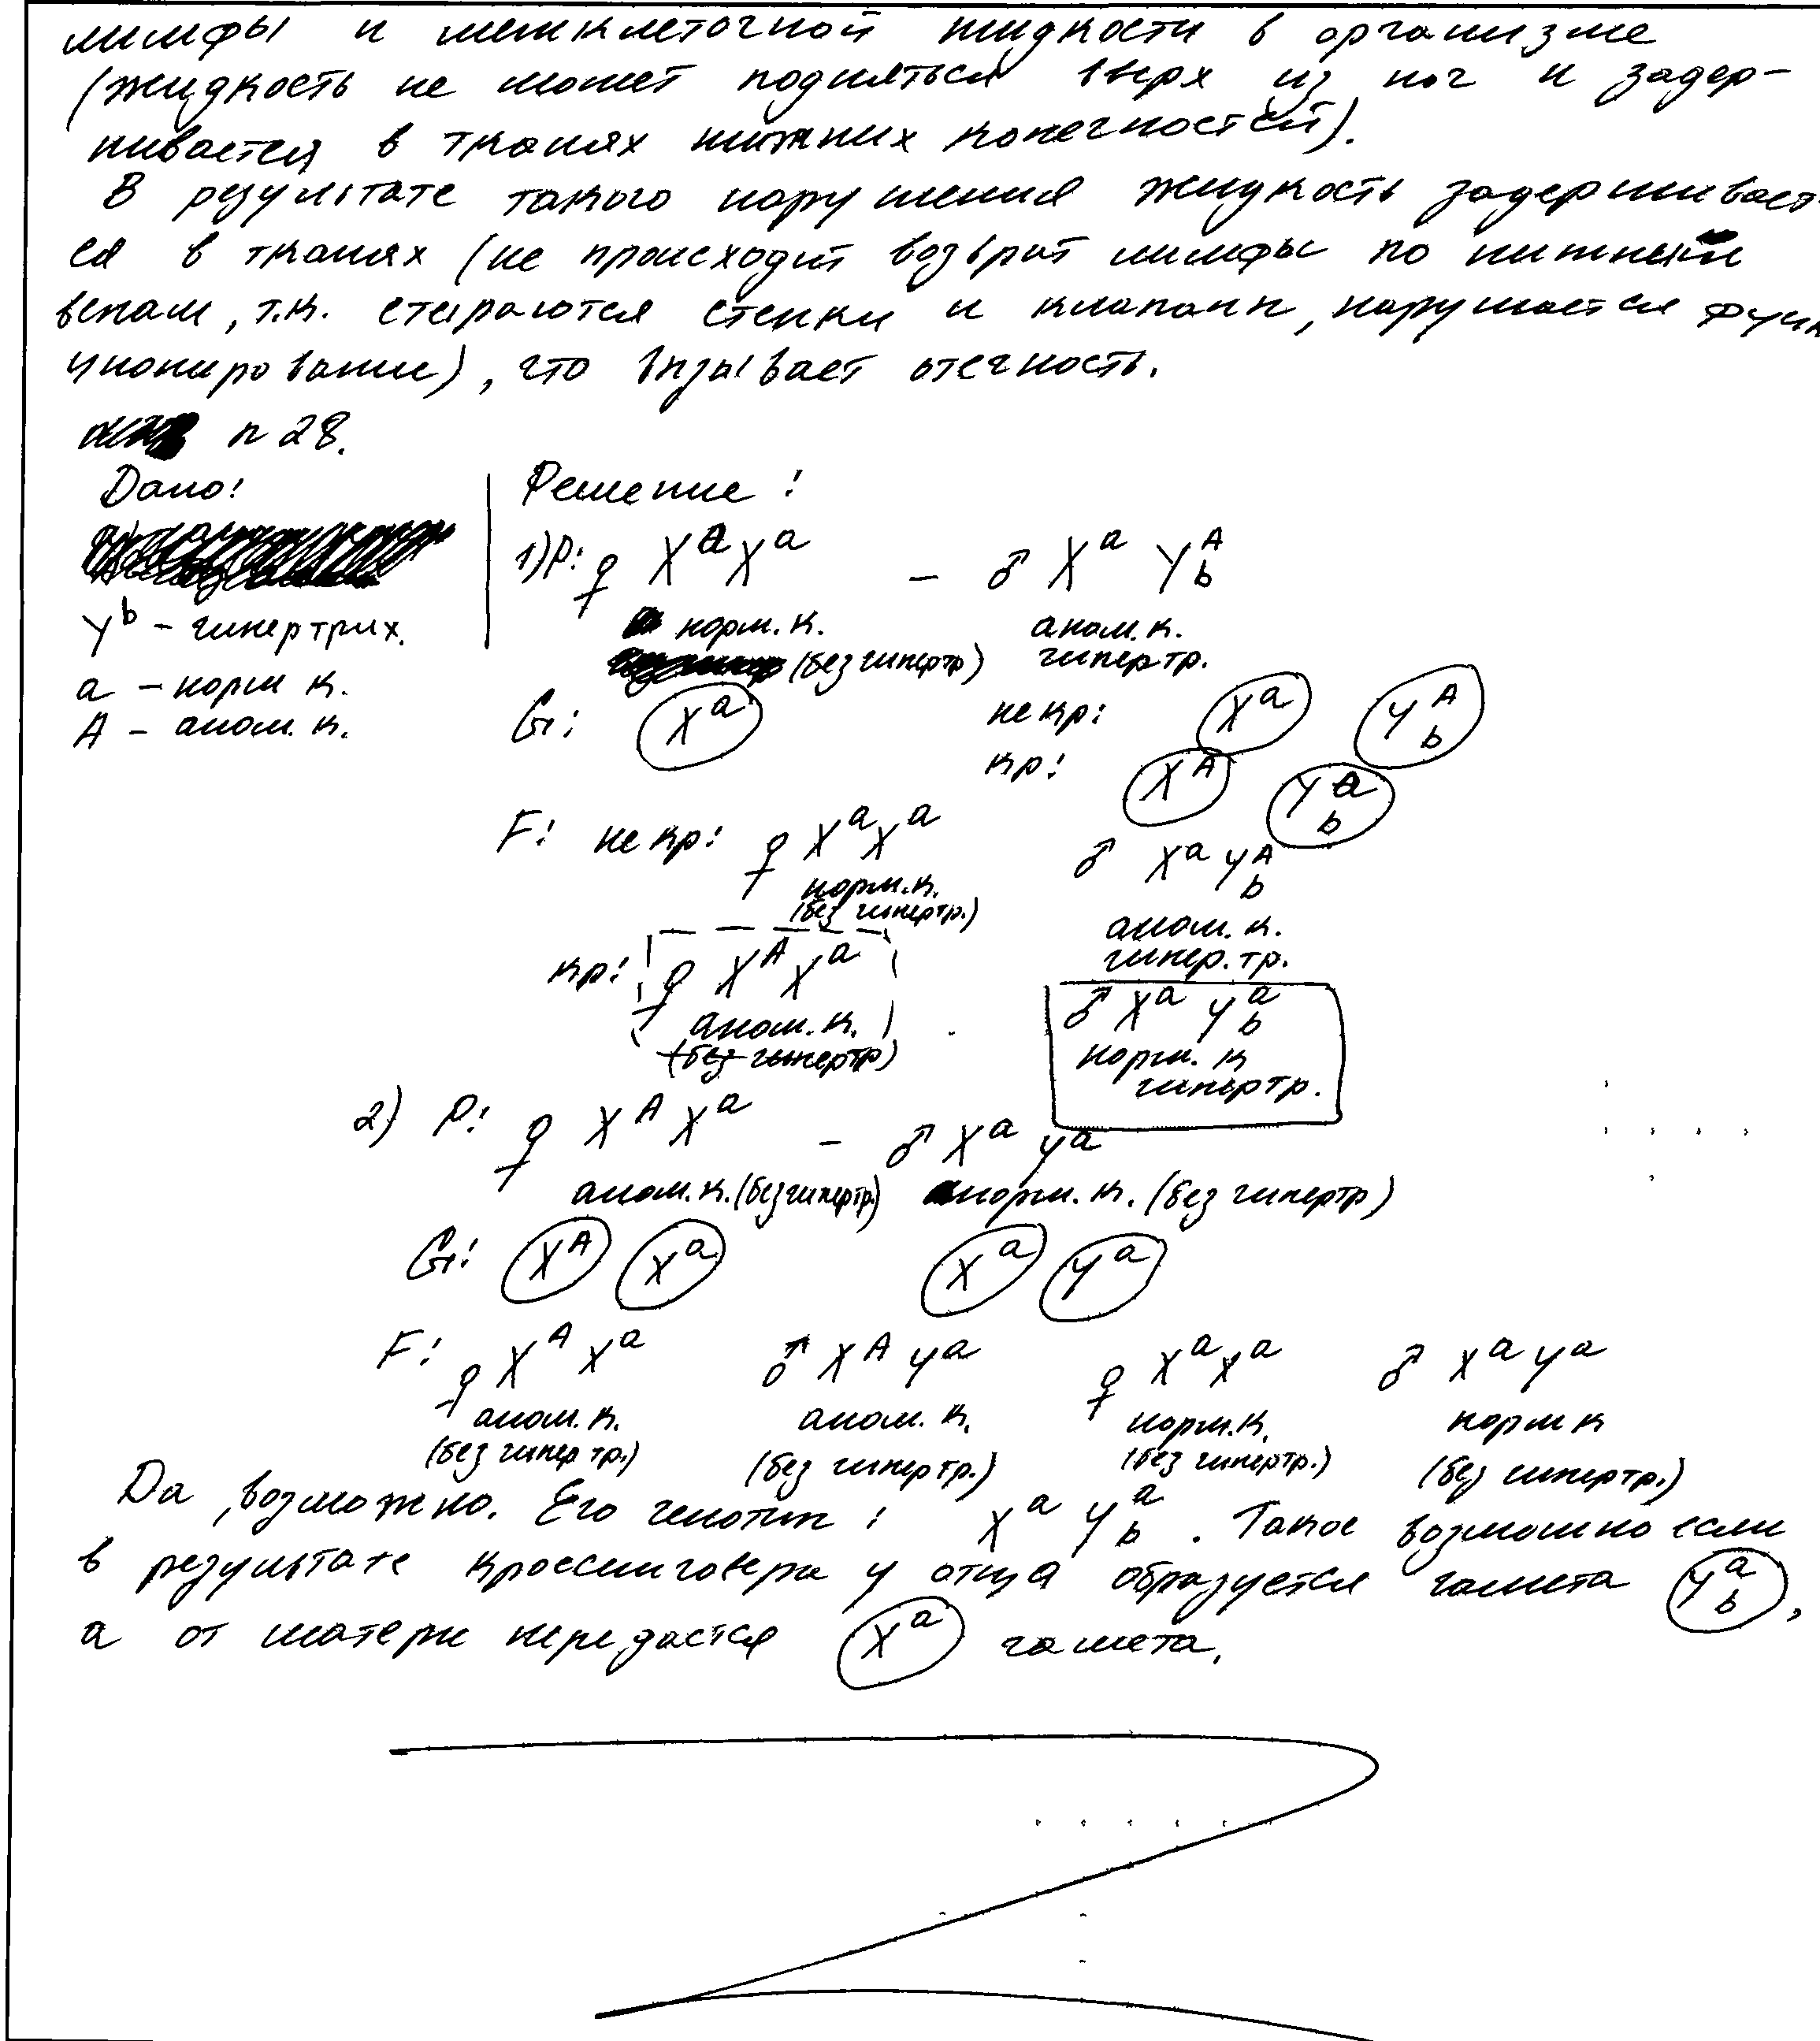 лимфы и межклеточной жидкости в организме
(жидкость не может подняться вверх из ног и задер-
живается в тканях нижних конечностей).
В результате такого нарушения жидкость задерживает-
ся в тканях (не происходит возврат лимфы по нижним
венам, т.к. стираются стенки и клапаны, нарушается функ
ционирование), что вызывает отечность.
n 28.
Дано:
Решение:
Y^b - гипертрих.
a - норм к.
A - аном. к.
1) P: ♀ X^a X^a - ♂ X^a Y^A_b
норм. к. аном. к.
(без гипертр) гипертр.
G: X^a не кр: X^a Y^A_b
кр: X^A Y^a_b
F: не кр: ♀ X^a X^a ♂ X^a Y^A_b
норм. к. аном. к.
(без гипертр.) гипер. тр.
кр: ♀ X^A X^a ♂ X^a Y^a_b
аном. к. норм. к
(без гипертр) гипертр.
2) P: ♀ X^A X^a - ♂ X^a Y^a
аном. к. (без гипертр.) норм. к. (без гипертр)
G: X^A X^a X^a Y^a
F: ♀ X^A X^a ♂ X^A Y^a ♀ X^a X^a ♂ X^a Y^a
аном. к. аном. к. норм. к. норм к
(без гипертр.) (без гипертр.) (без гипертр.) (без гипертр.)
Да, возможно. Его генотип: X^a Y^a_b. Такое возможно если
в результате кроссинговера у отца образуется гамета Y^a_b,
а от матери передастся X^a гамета.